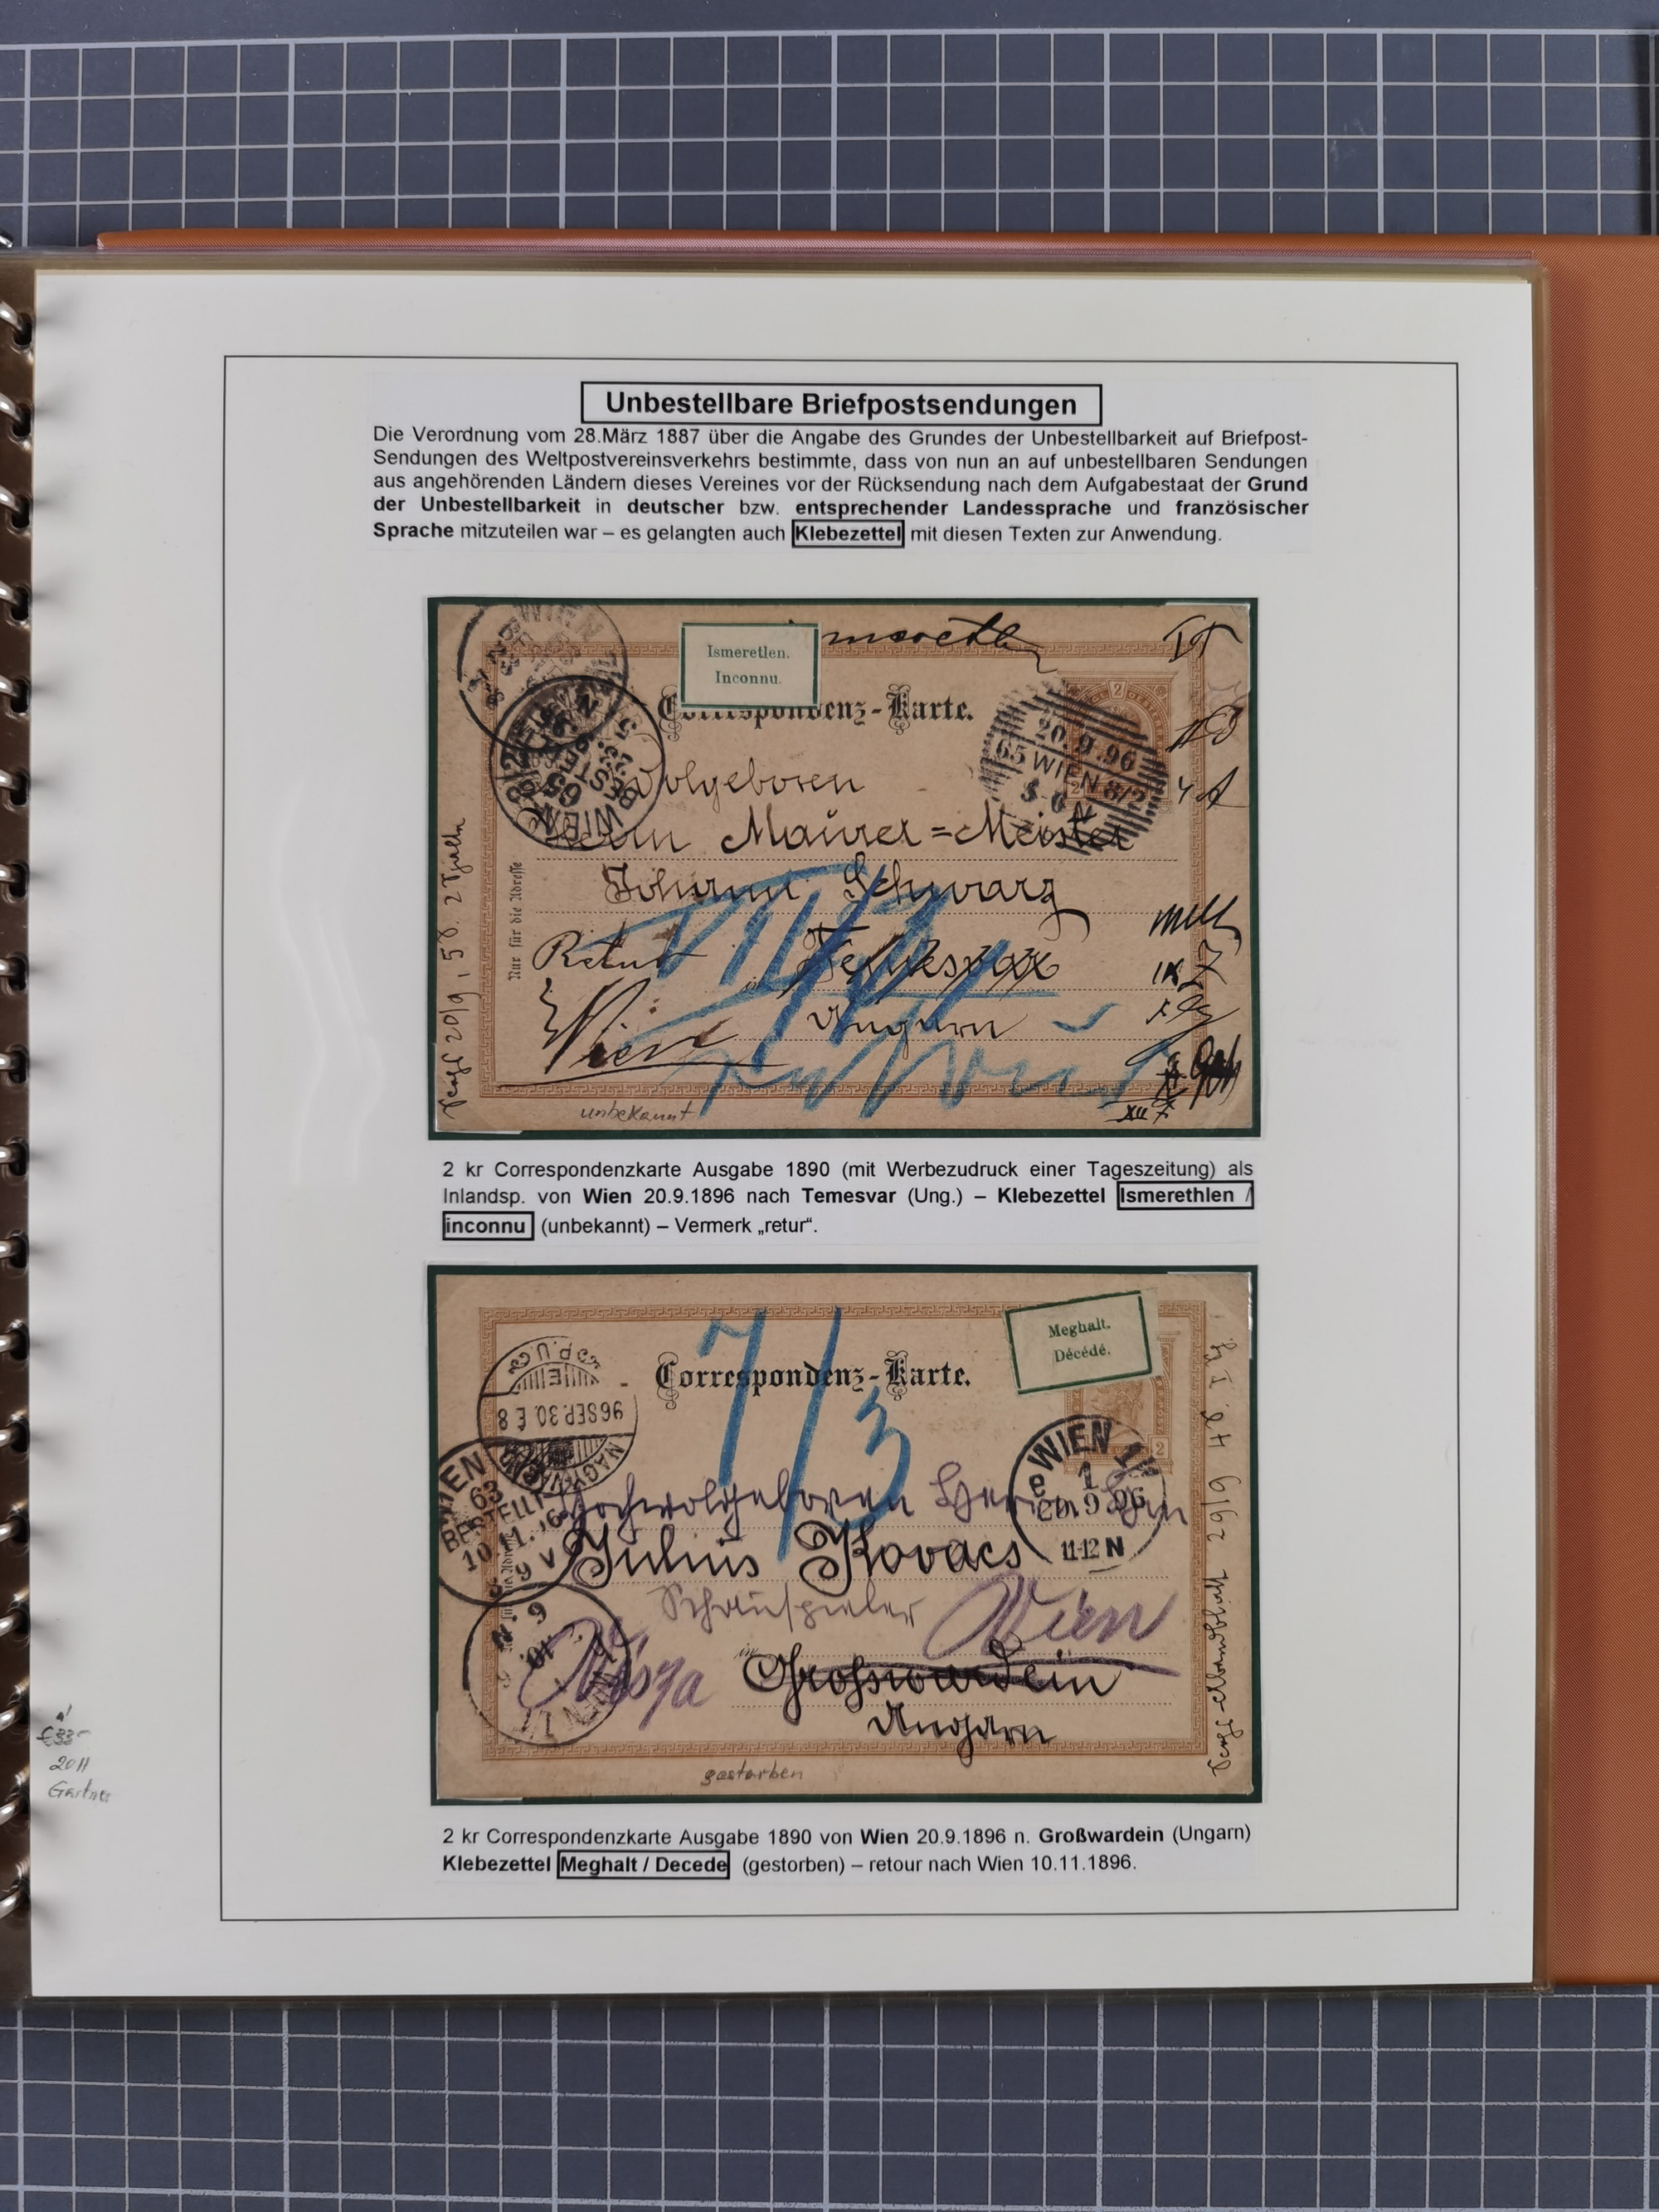 Unbestellbare Briefpostsendungen
Die Verordnung vom 28.März 1887 über die Angabe des Grundes der Unbestellbarkeit auf Briefpost-
Sendungen des Weltpostvereinsverkehrs bestimmte, dass von nun an auf unbestellbaren Sendungen
aus angehörenden Ländern dieses Vereines vor der Rücksendung nach dem Aufgabestaat der Grund
der Unbestellbarkeit in deutscher bzw. entsprechender Landessprache und französischer
Sprache mitzuteilen war – es gelangten auch Klebezettel mit diesen Texten zur Anwendung.
Ismeretlen.
Inconnu.
Correspondenz-Karte.
2
20.9.96
65 WIEN 8/2
WIEN 65
BESTELLT
Wolgeboren
Herrn Maurer=Meister
Johann Schwarz
Nur für die Adresse
Retur
Temesvar
Wien
Ungarn
unbekannt
2 kr Correspondenzkarte Ausgabe 1890 (mit Werbezudruck einer Tageszeitung) als
Inlandsp. von Wien 20.9.1896 nach Temesvar (Ung.) – Klebezettel Ismerethlen /
inconnu (unbekannt) – Vermerk „retur“.
Meghalt.
Décédé.
7/3
Correspondenz-Karte.
96 SEP. 30. E 8
2
WIEN
1
9 96
11-12 N
WIEN
63
BESTELLT
10.11.
9 V
Hochwolgeboren Herrn
Julius Kovacs
Schauspieler
Wien
in Grosswardein
Ungarn
gestorben
2011
2 kr Correspondenzkarte Ausgabe 1890 von Wien 20.9.1896 n. Großwardein (Ungarn)
Klebezettel Meghalt / Decede (gestorben) – retour nach Wien 10.11.1896.